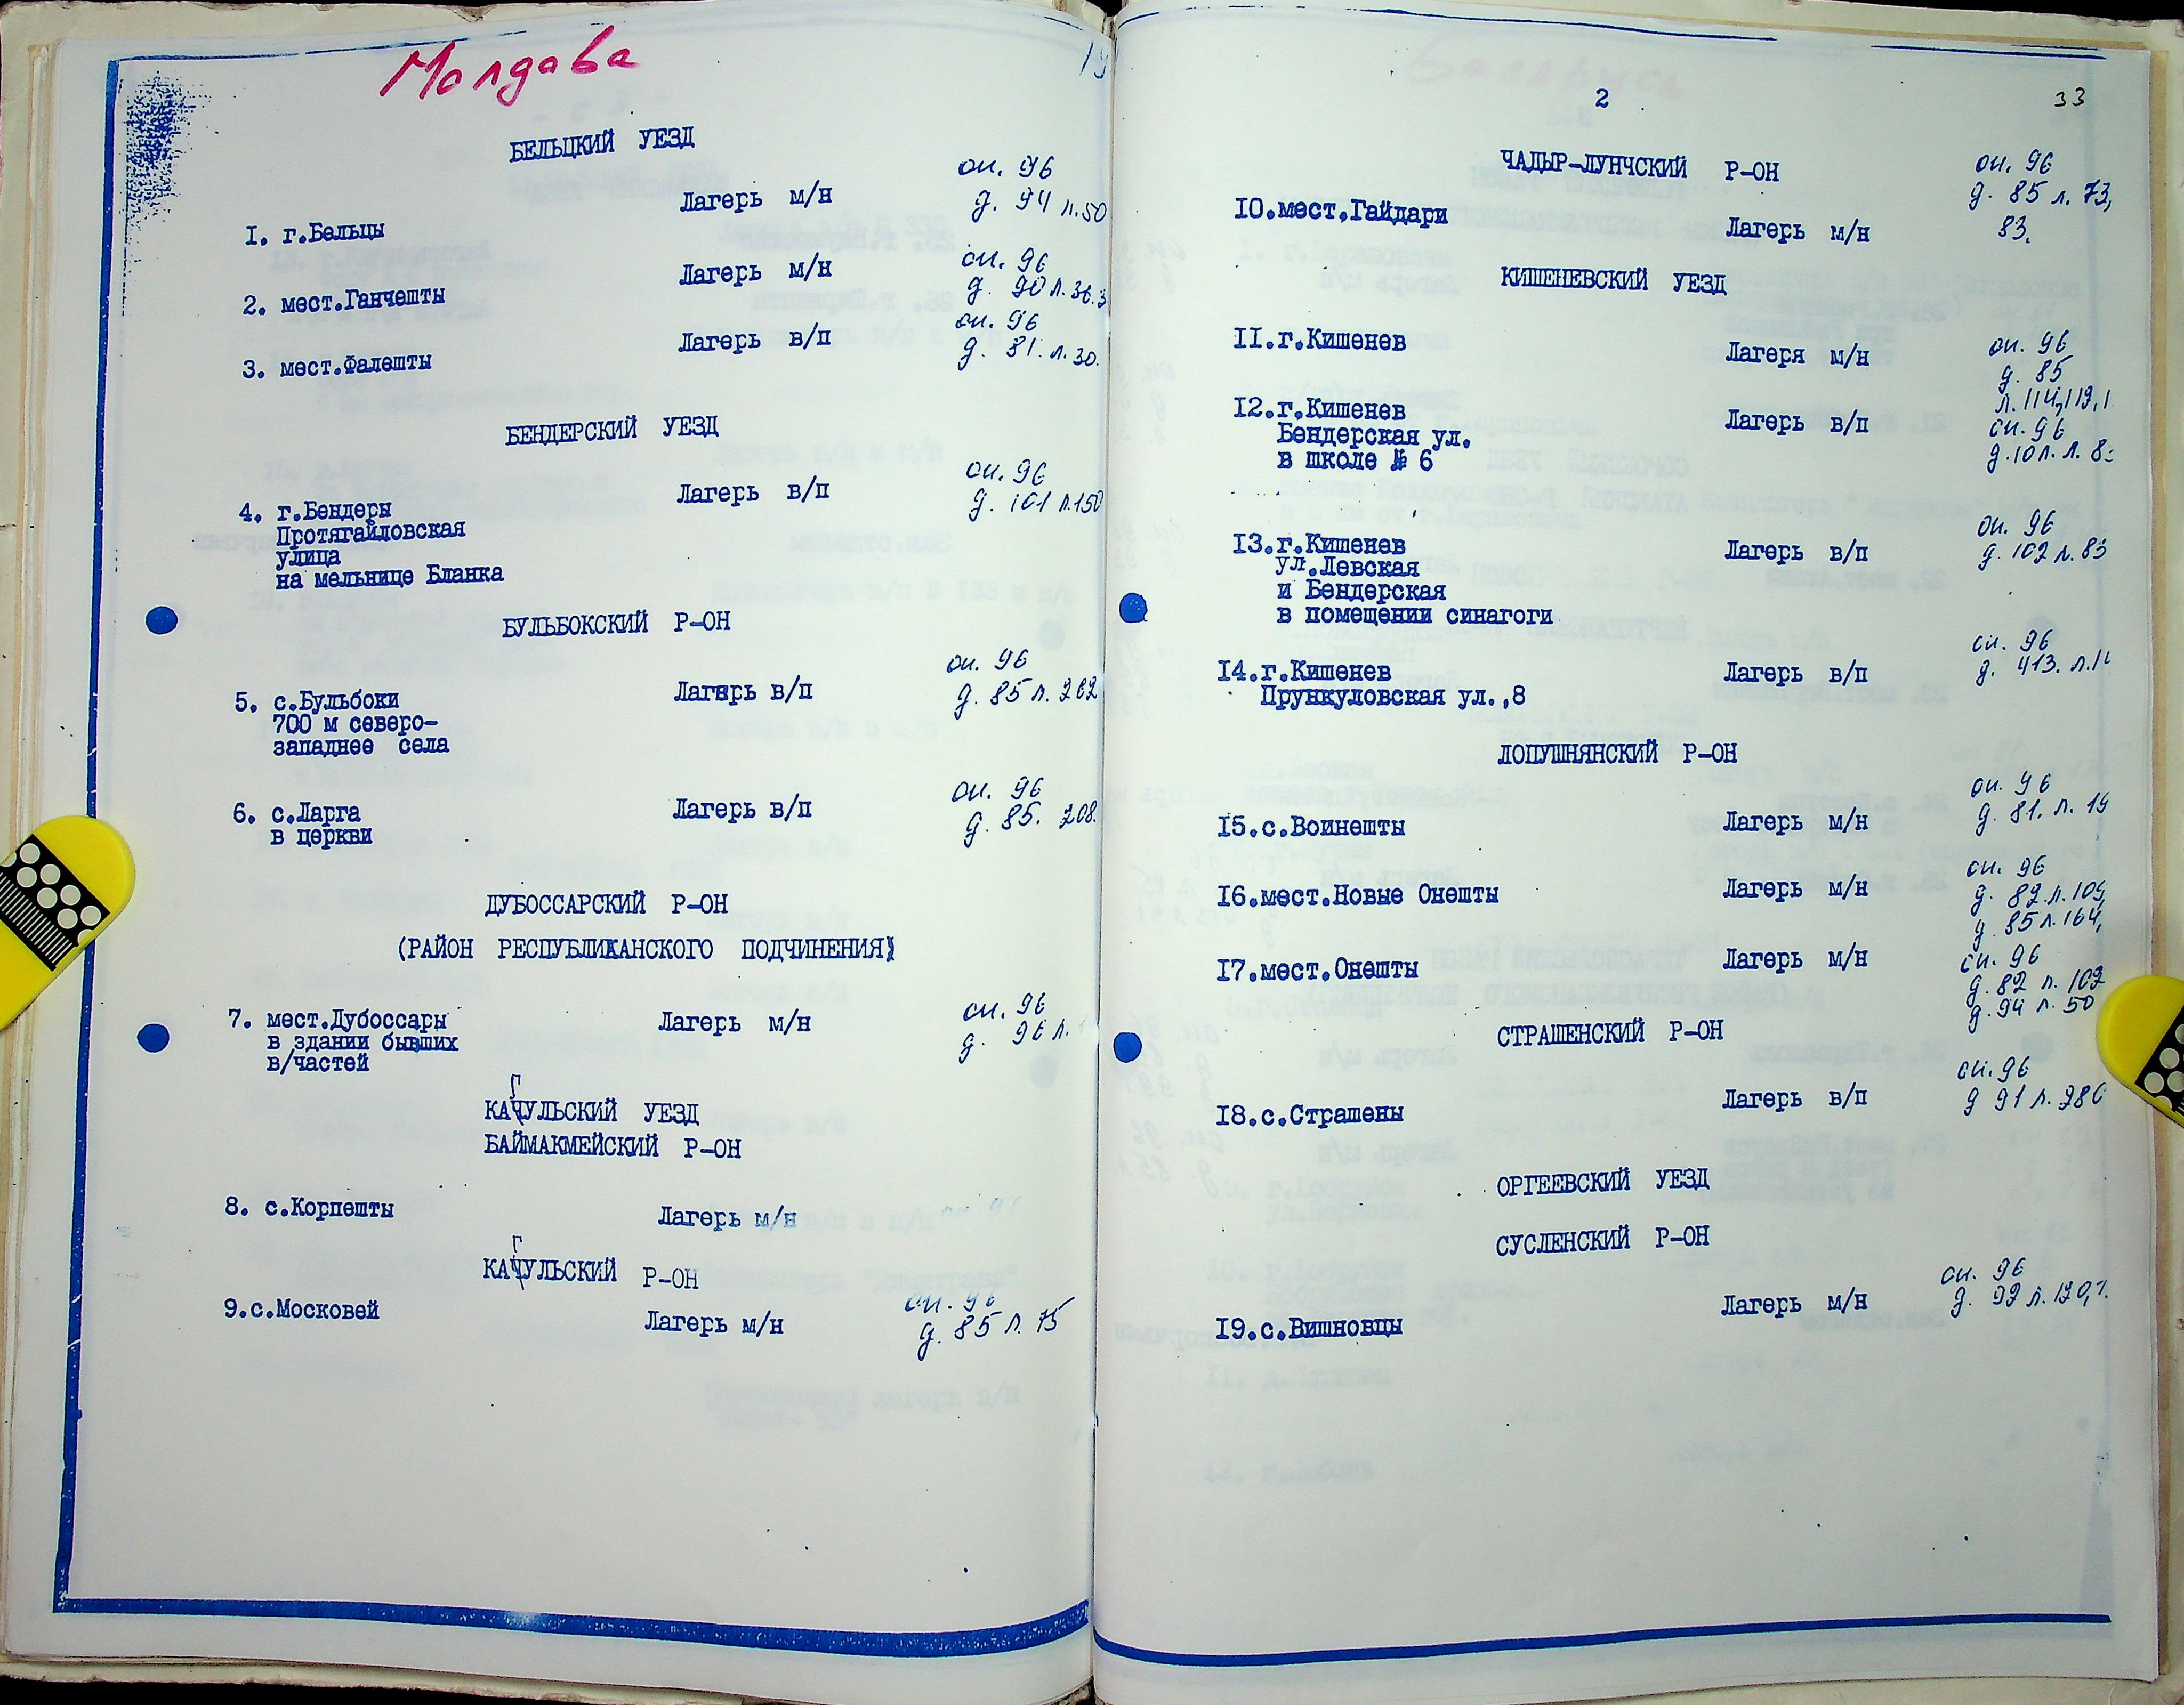 Молдава
БЕЛЬЦКИЙ УЕЗД
1. г.Бельцы Лагерь м/н оп. 96
д. 94 л.50
2. мест.Ганчешты Лагерь м/н оп. 96
д. 90 л.36.3
3. мест.Фалешты Лагерь в/п оп. 96
д. 81. л.30.
БЕНДЕРСКИЙ УЕЗД
4. г.Бендеры Лагерь в/п оп. 96
Протягайловская д. 101 л.150
улица
на мельнице Бланка
БУЛЬБОКСКИЙ Р-ОН
5. с.Бульбоки Лагерь в/п оп. 96
700 м северо- д. 85 л. 262
западнее села
6. с.Ларга Лагерь в/п оп. 96
в церкви д. 85. 208.
ДУБОССАРСКИЙ Р-ОН
(РАЙОН РЕСПУБЛИКАНСКОГО ПОДЧИНЕНИЯ)
7. мест.Дубоссары Лагерь м/н оп. 96
в здании бывших д. 96 л.
в/частей
Г
КАЧУЛЬСКИЙ УЕЗД
БАЙМАКМЕЙСКИЙ Р-ОН
8. с.Корпешты Лагерь м/н
Г
КАЧУЛЬСКИЙ Р-ОН
9.с.Московей Лагерь м/н оп. 96
д. 85 л. 75
2
33
ЧАДЫР-ЛУНЧСКИЙ Р-ОН
10.мест.Гайдари Лагерь м/н оп. 96
д. 85 л. 73,
83.
КИШЕНЕВСКИЙ УЕЗД
11.г.Кишенев Лагеря м/н оп. 96
д. 85
л.114,119,1
12.г.Кишенев Лагерь в/п оп.96
Бендерская ул.
в школе № 6
13.г.Кишенев Лагерь в/п оп. 96
ул.Левская д. 102 л. 83
и Бендерская
в помещении синагоги
14.г.Кишенев Лагерь в/п оп. 96
Прункуловская ул.,8 д. 413.
ЛОПУШНЯНСКИЙ Р-ОН
15.с.Воинешты Лагерь м/н оп. 96
д. 81. л. 19
16.мест.Новые Онешты Лагерь м/н оп. 96
д. 82.л.109,
д. 85л.164,
17.мест.Онешты Лагерь м/н оп. 96
д.82 л. 102
д.94 л. 50
СТРАШЕНСКИЙ Р-ОН
18.с.Страшены Лагерь в/п оп.96
д 91 л. 286
ОРГЕЕВСКИЙ УЕЗД
СУСЛЕНСКИЙ Р-ОН
19.с.Вишновцы Лагерь м/н оп. 96
д. 92 л.120,1.